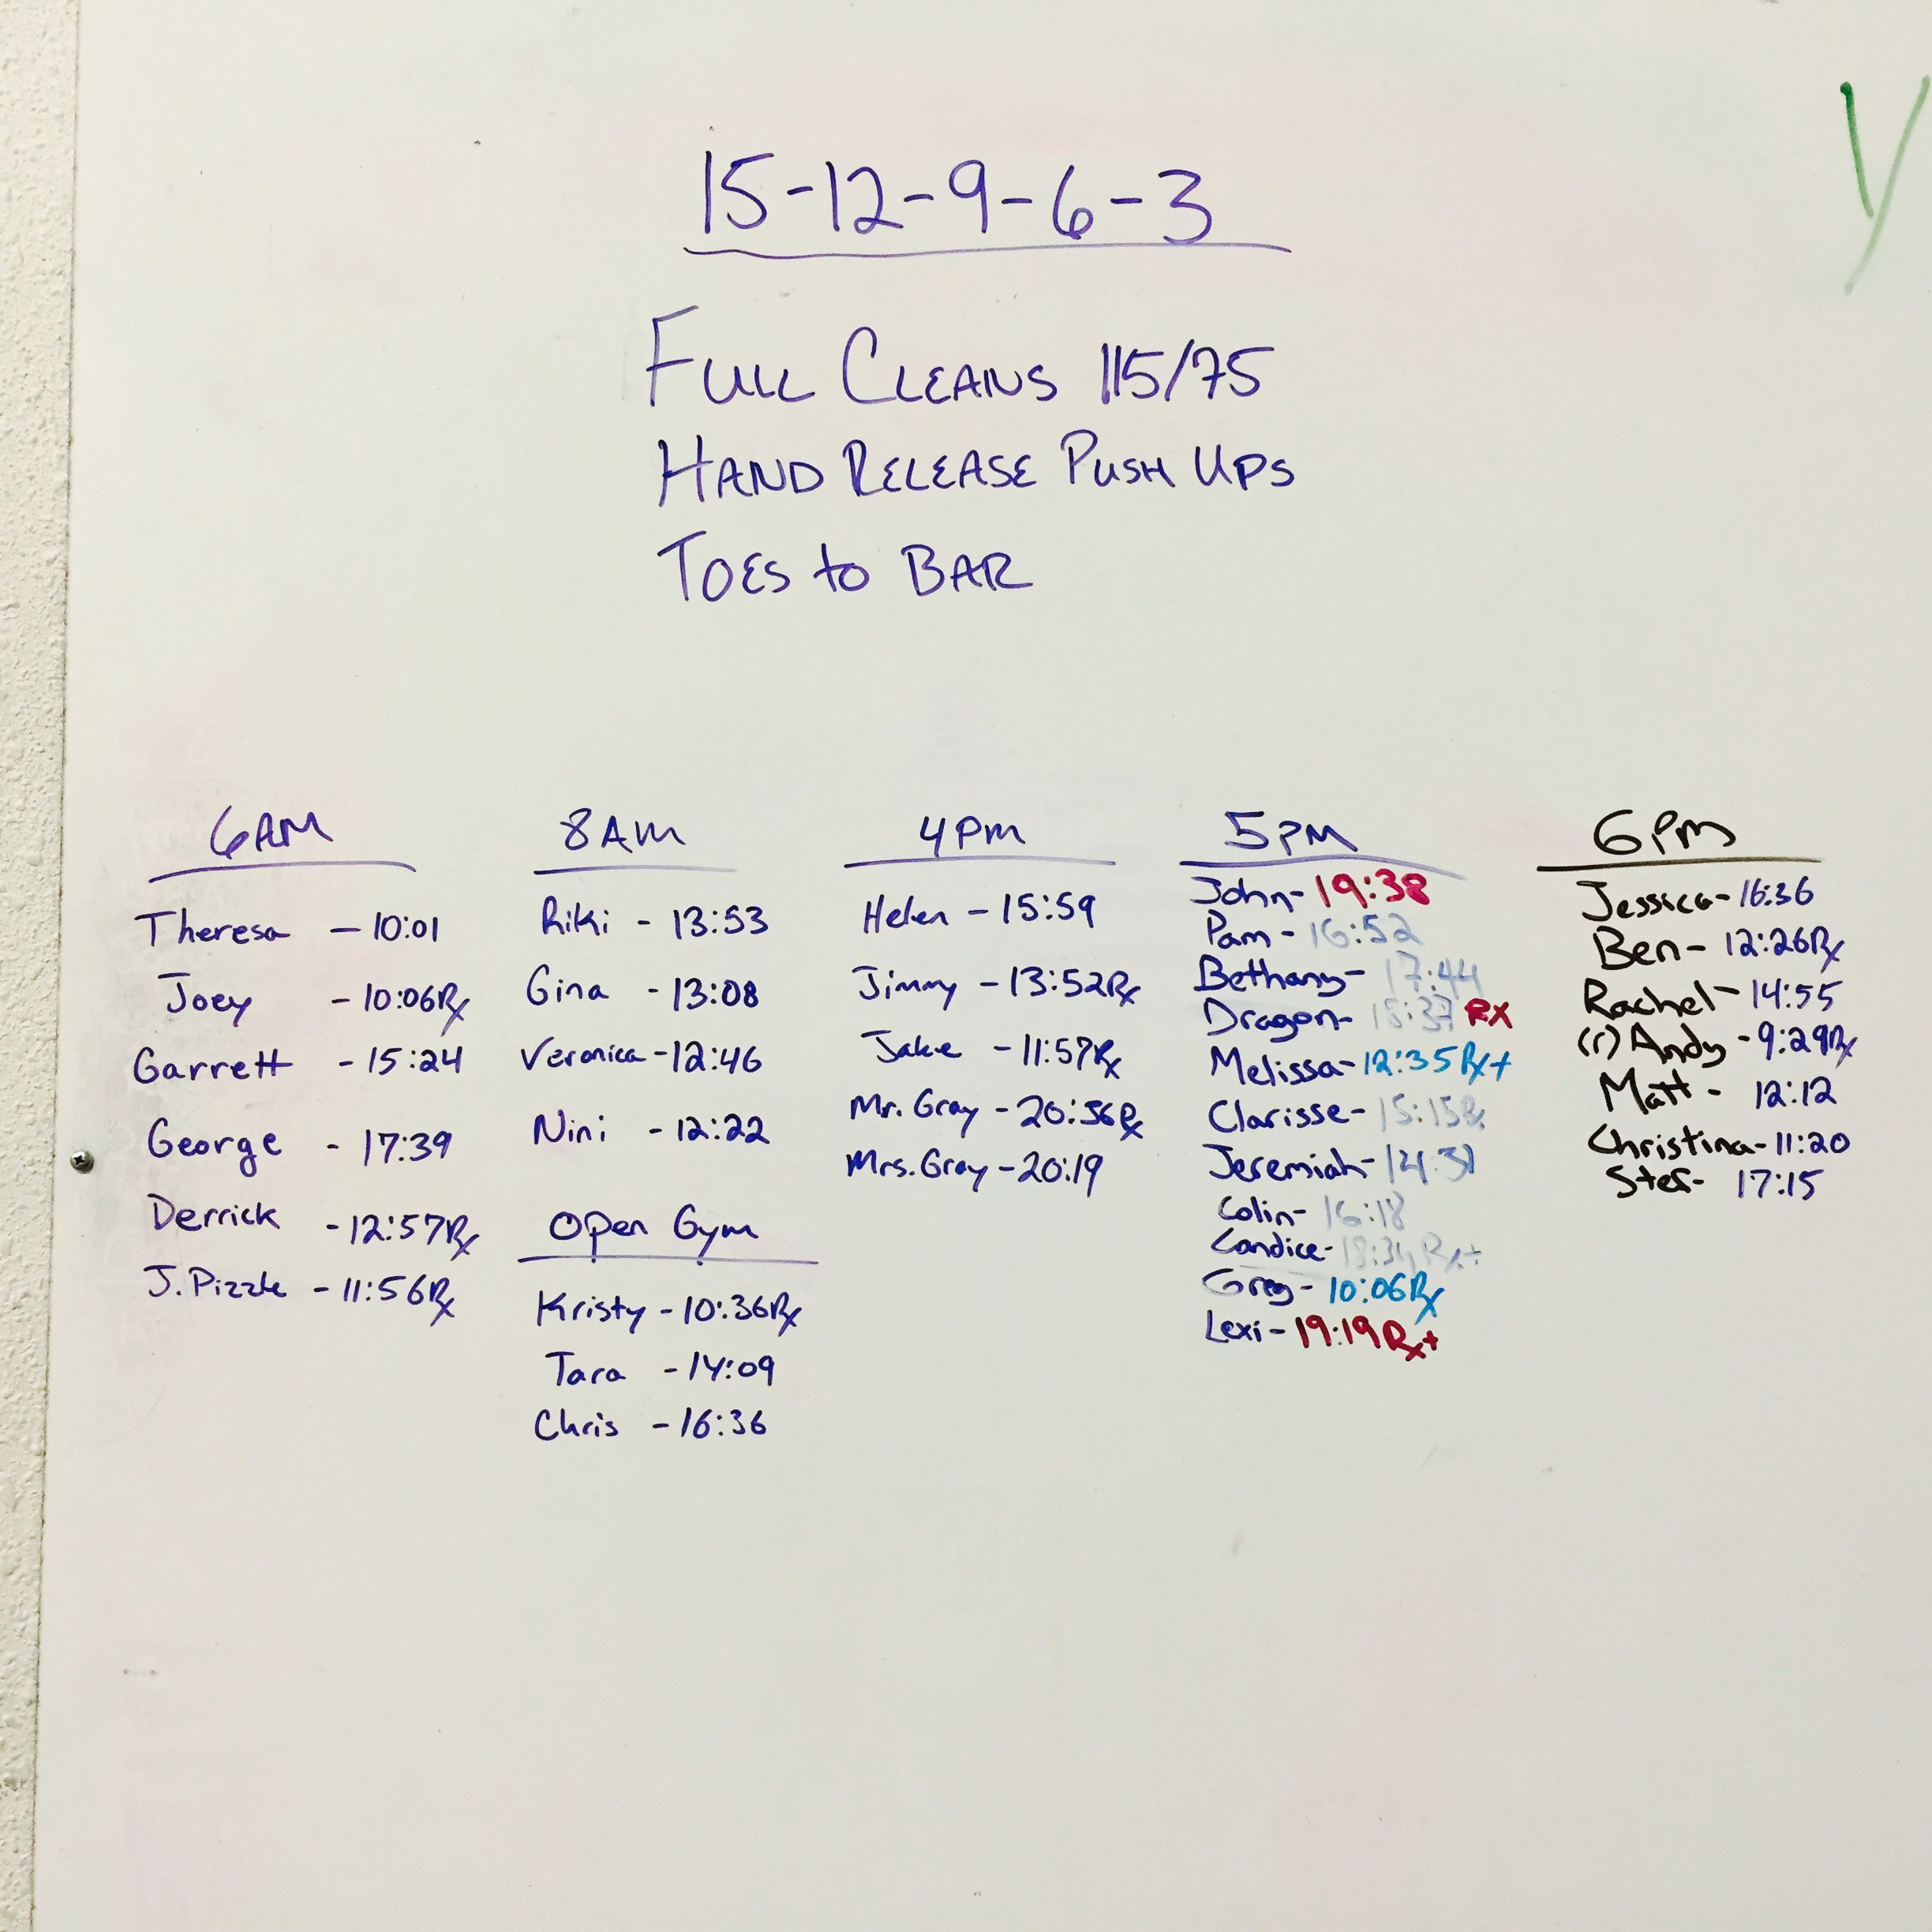 15-12-9-6-3
FULL CLEANS 115/75
HAND RELEASE PUSH UPS
TOES to BAR
6AM
Theresa - 10:01
Joey - 10:06Rx
Garrett - 15:24
George - 17:39
Derrick - 12:57Rx
J. Pizzle - 11:56Rx
8AM
Riki - 13:53
Gina - 13:08
Veronica - 12:46
Nini - 12:22
Open Gym
Kristy - 10:36Rx
Tara - 14:09
Chris - 16:36
4PM
Helen - 15:59
Jimmy - 13:52Rx
Jake - 11:57Rx
Mr. Gray - 20:36Rx
Mrs. Gray - 20:19
5PM
John - 19:38
Pam - 16:52
Bethany - 17:44
Dragon - RX
Melissa - 12:35Rx+
Clarisse - 15:15Rx
Jeremiah -
Colin - 16:18
Candice - Rx+
Greg - 10:06Rx
Lexi - 19:19Rx+
6PM
Jessica - 16:36
Ben - 12:26Rx
Rachel - 14:55
(r) Andy - 9:29Rx
Matt - 12:12
Christina - 11:20
Stef - 17:15